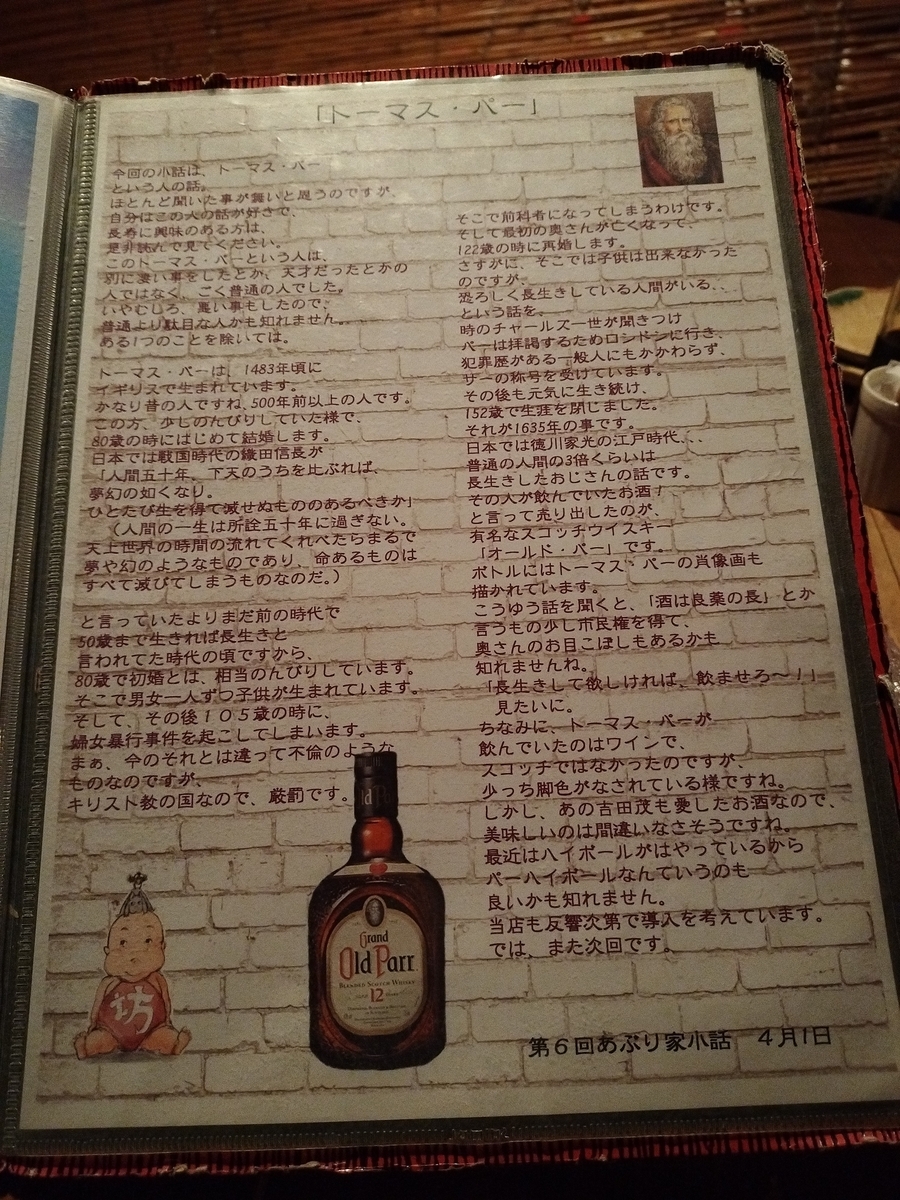 「トーマス・パー」
今回の小話は、トーマス・パー
という人の話。
ほとんど聞いた事が無いと思うのですが、
自分はこの人の話が好きで、
長寿に興味のある方は、
是非読んで見てください。
このトーマス・パーという人は、
別に凄い事をしたとか、天才だったとかの
人ではなく、ごく普通の人でした。
いやむしろ、悪い事もしたので、
普通より駄目な人かも知れません。
ある1つのことを除いては。
トーマス・パーは、1483年頃に
イギリスで生まれています。
かなり昔の人ですね、500年前以上の人です。
この方、少しのんびりしていた様で、
80歳の時にはじめて結婚します。
日本では戦国時代の織田信長が
「人間五十年、下天のうちを比ぶれば、
夢幻の如くなり。
ひとたび生を得て滅せぬもののあるべきか」
（人間の一生は所詮五十年に過ぎない。
天上世界の時間の流れてくれべたらまるで
夢や幻のようなものであり、命あるものは
すべて滅びてしまうものなのだ。）
と言っていたよりまだ前の時代で
50歳まで生きれば長生きと
言われてた時代の頃ですから、
80歳で初婚とは、相当のんびりしています。
そこで男女一人ずつ子供が生まれています。
そして、その後１０５歳の時に、
婦女暴行事件を起こしてしまいます。
まぁ、今のそれとは違って不倫のような
ものなのですが、
キリスト教の国なので、厳罰です。
そこで前科者になってしまうわけです。
そして最初の奥さんが亡くなって、
122歳の時に再婚します。
さすがに、そこでは子供は出来なかった
のですが、
恐ろしく長生きしている人間がいる．．
という話を、
時のチャールズ一世が聞きつけ
パーは拝謁するためロンドンに行き、
犯罪歴がある一般人にもかかわらず、
サーの称号を受けています。
その後も元気に生き続け、
152歳で生涯を閉じました。
それが1635年の事です。
日本では徳川家光の江戸時代．．．
普通の人間の3倍くらいは
長生きしたおじさんの話です。
その人が飲んでいたお酒！
と言って売り出したのが、
有名なスコッチウイスキー
「オールド・パー」です。
ボトルにはトーマス・パーの肖像画も
描かれています。
こうゆう話を聞くと、「酒は良薬の長」とか
言うもの少し市民権を得て、
奥さんのお目こぼしもあるかも
知れませんね。
「長生きして欲しければ、飲ませろ～！」
見たいに。
ちなみに、トーマス・パーが
飲んでいたのはワインで、
スコッチではなかったのですが、
少っち脚色がなされている様ですね。
しかし、あの吉田茂も愛したお酒なので、
美味しいのは間違いなさそうですね。
最近はハイボールがはやっているから
パーハイボールなんていうのも
良いかも知れません。
当店も反響次第で導入を考えています。
では、また次回です。
坊
Grand
Old Parr
BLENDED SCOTCH WHISKY
12
第６回あぶり家小話　４月1日